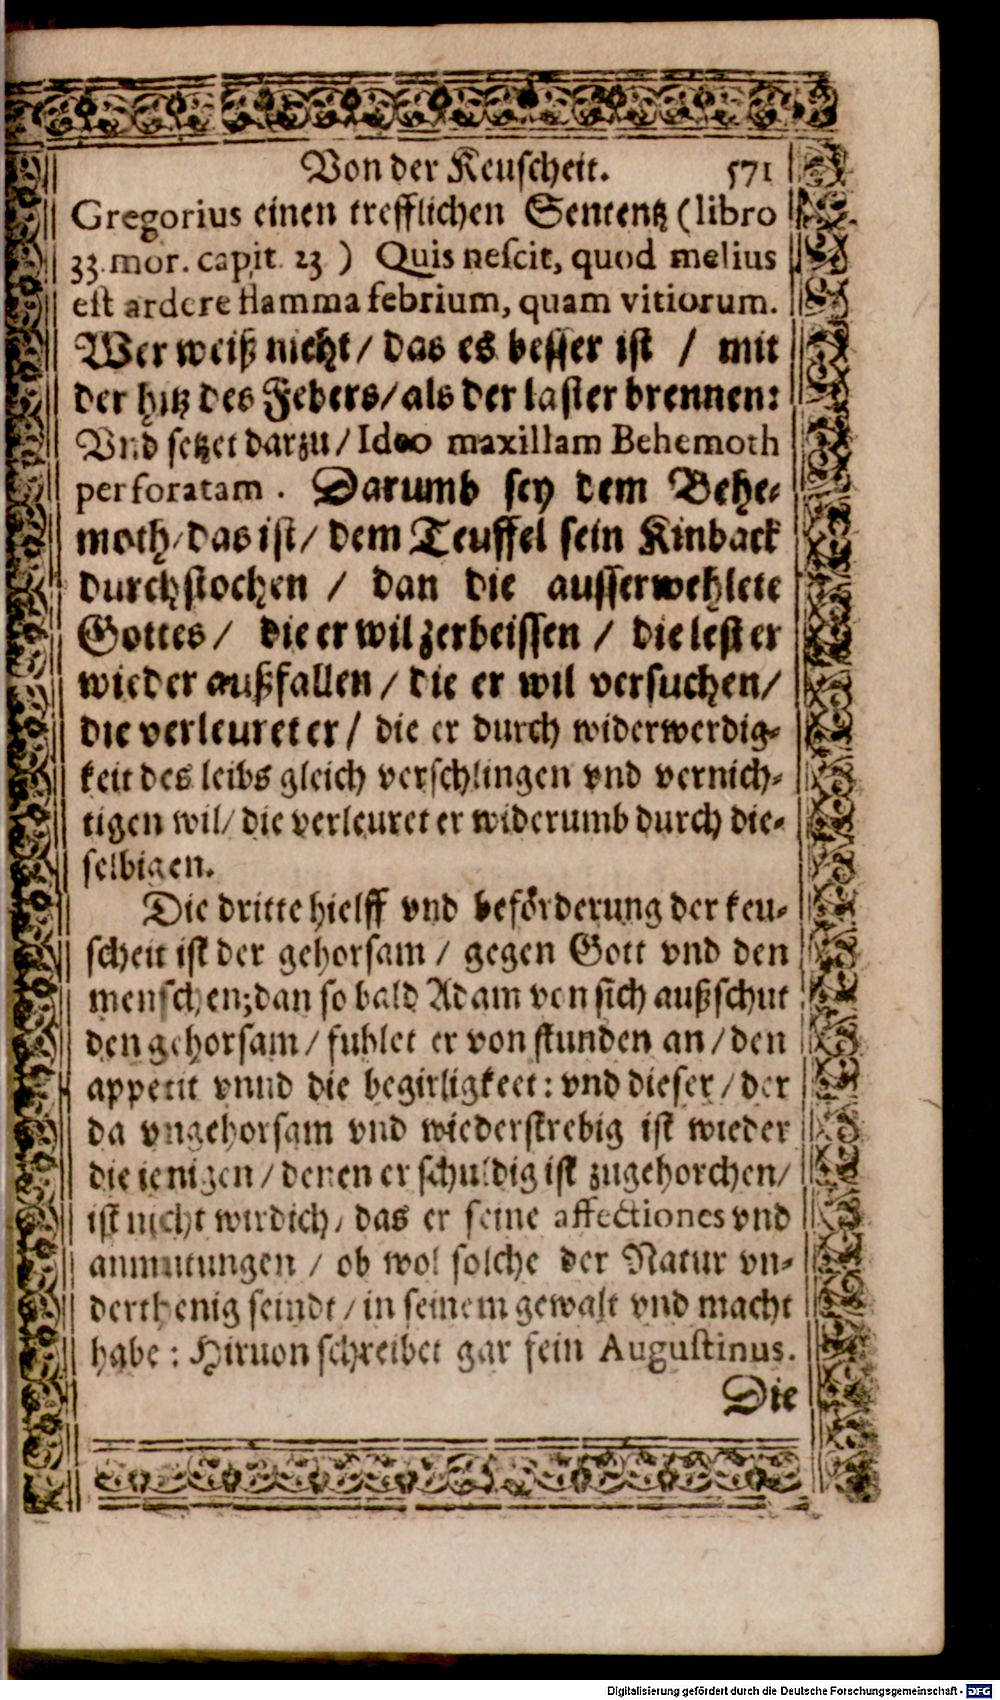 Von der Keuscheit. 571
Gregorius einen trefflichen Sententz (libro
33. mor. capit. 23 ) Quis nescit, quod melius
est ardere flamma febrium, quam vitiorum.
Wer weiß nicht / das es besser ist / mit
der hitz des Febers / als der laster brennen:
Vnd setzet darzu / Ideo maxillam Behemoth
perforatam . Darumb sey dem Behe-
moth / das ist / dem Teuffel sein Kinback
durchstochen / dan die ausserwehlete
Gottes / die er wil zerbeissen / die lest er
wieder außfallen / die er wil versuchen /
die verleuret er / die er durch widerwerdig-
keit des leibs gleich verschlingen vnd vernich-
tigen wil / die verleuret er widerumb durch die-
selbigen.
Die dritte hielff vnd beförderung der keu-
scheit ist der gehorsam / gegen Gott vnd den
menschen; dan so bald Adam von sich außschut
den gehorsam / fuhlet er von stunden an / den
appetit vnnd die begirligkeet: vnd dieser / der
da vngehorsam vnd wiederstrebig ist wieder
die ienigen / denen er schuldig ist zugehorchen /
ist nicht wirdich / das er seine affectiones vnd
anmutungen / ob wol solche der Natur vn-
derthenig seindt / in seinem gewalt vnd macht
habe : Hiruon schreibet gar fein Augustinus.
Die
Digitalisierung gefördert durch die Deutsche Forschungsgemeinschaft - DFG